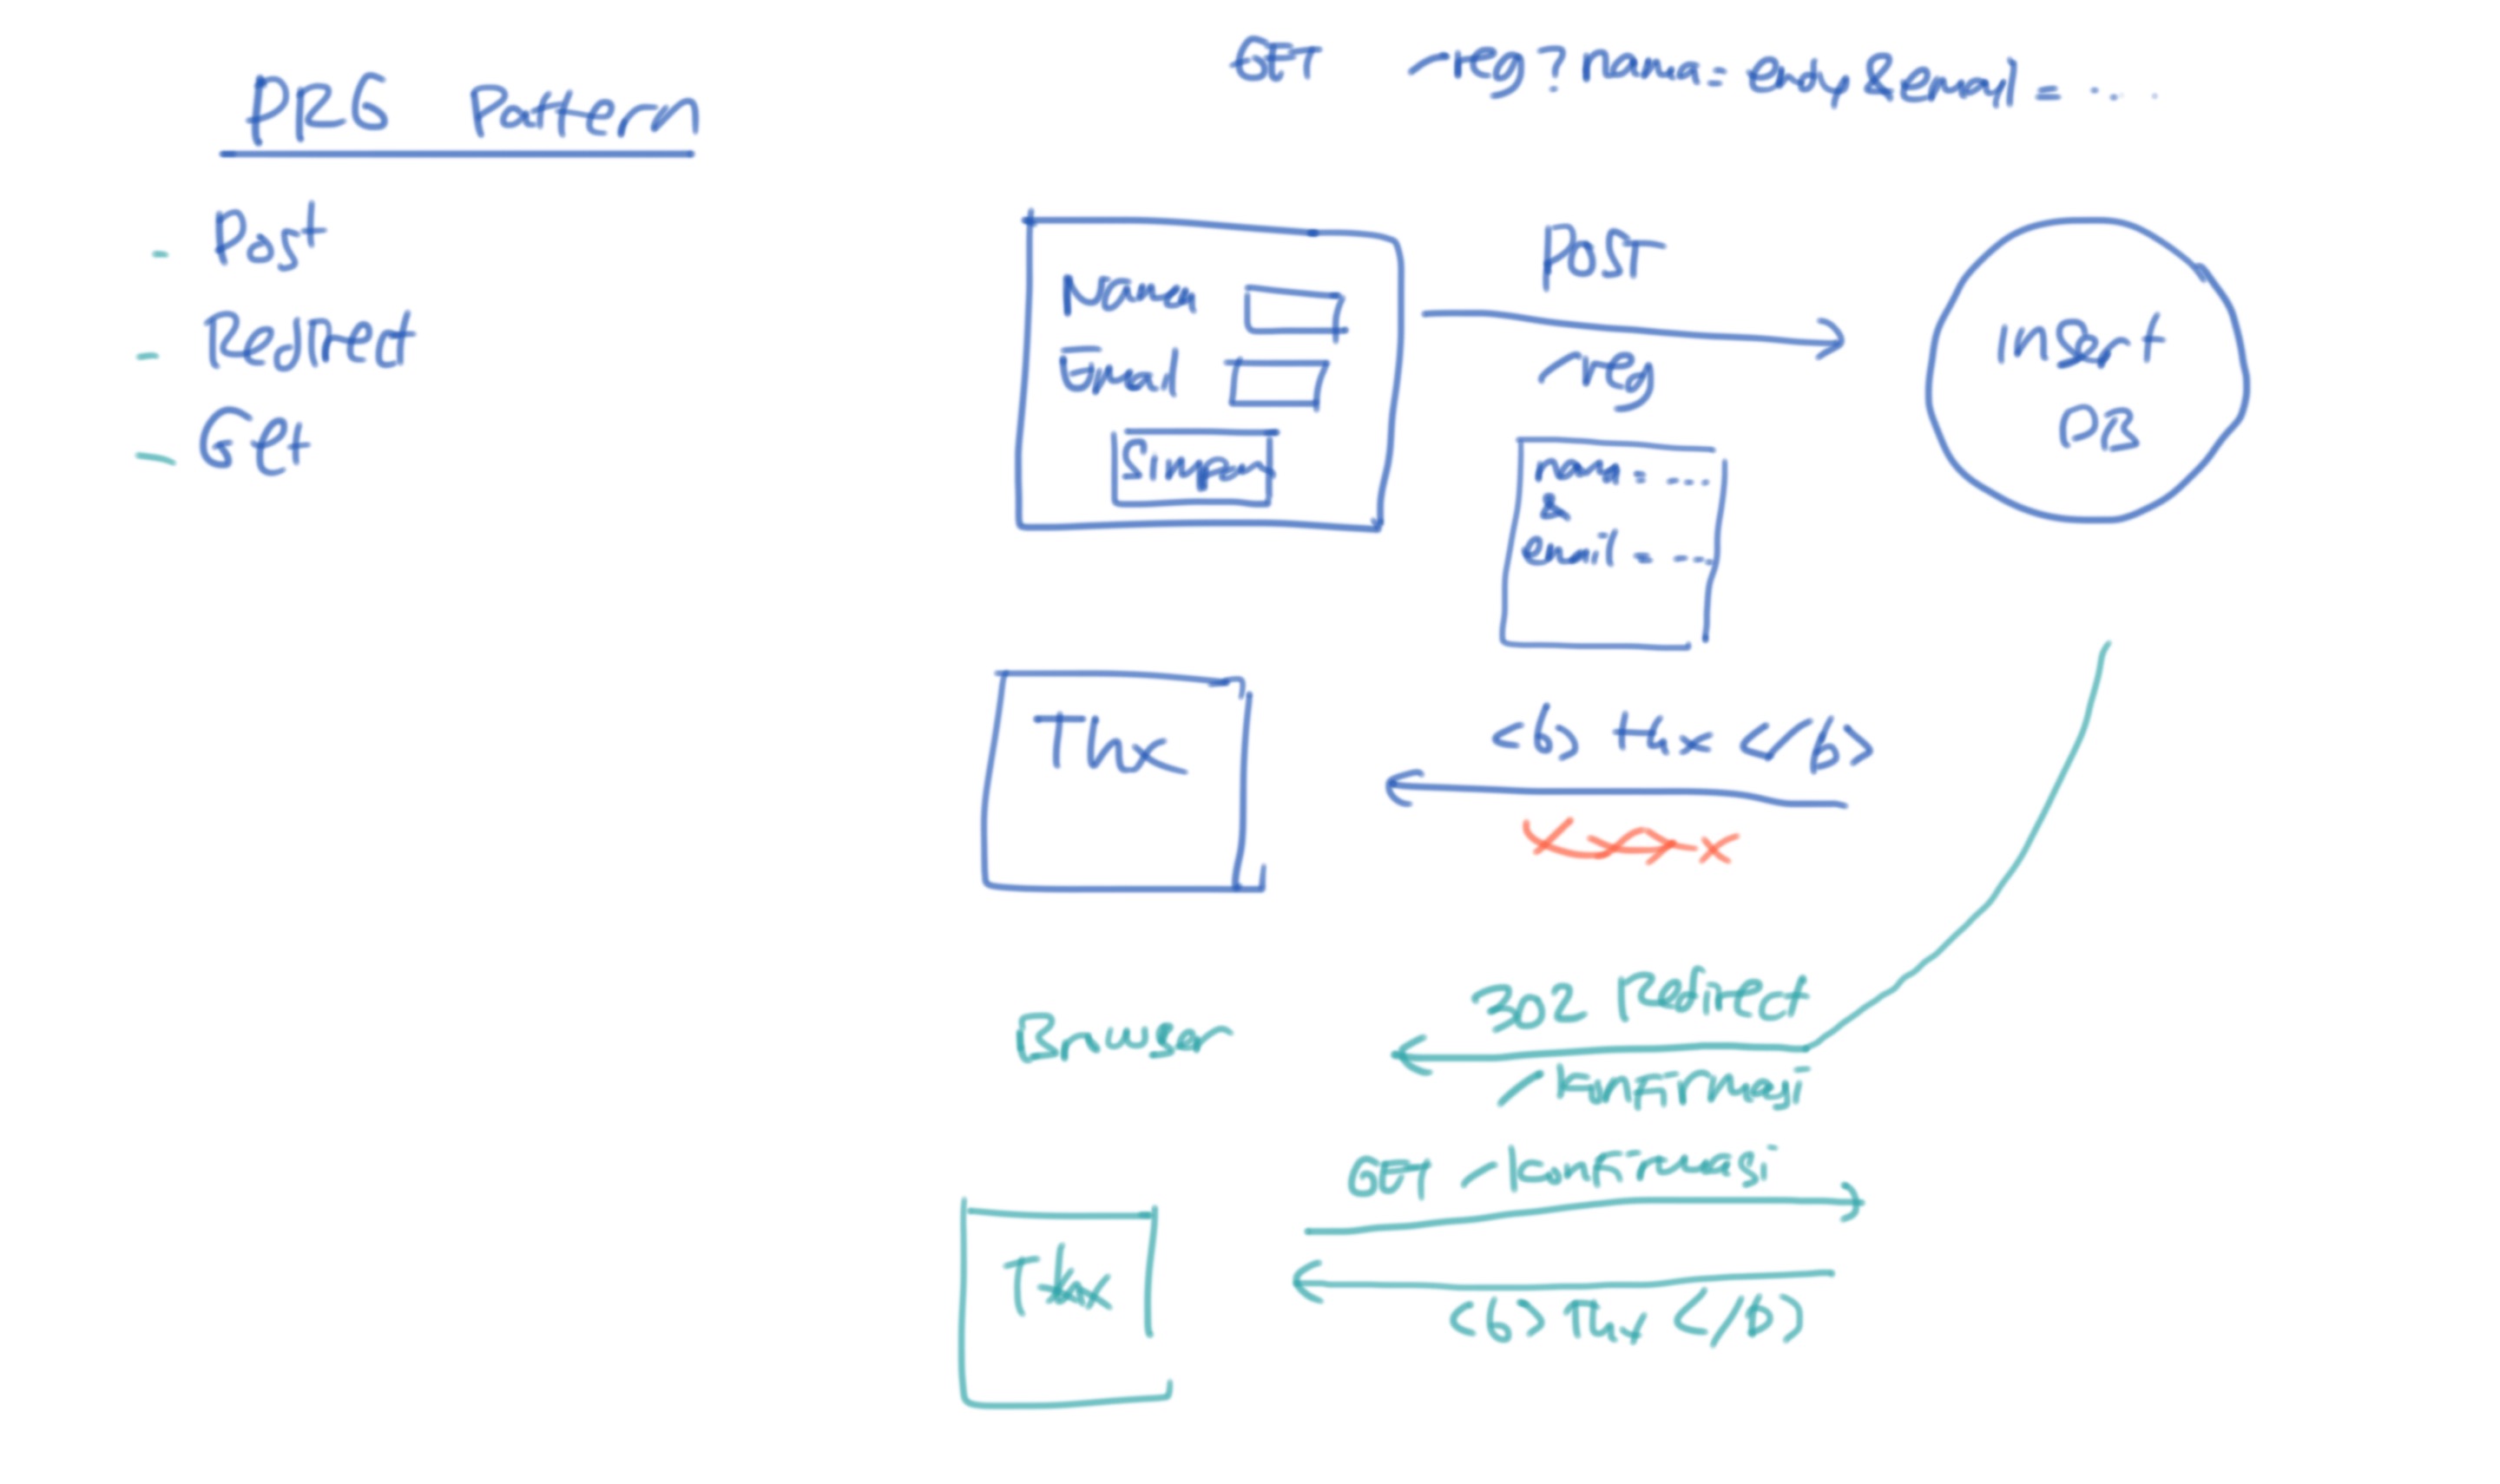 PRG Pattern
- Post
- Redirect
- Get
GET /reg?nama=endy&email=....
Nama
Email
Simpan
POST
/reg
nama=....
&
email=....
insert
DB
Thx
<b> thx </b>
Browser
302 Redirect
/konfirmasi
GET /konfirmasi
Thx
<b> Thx </b>